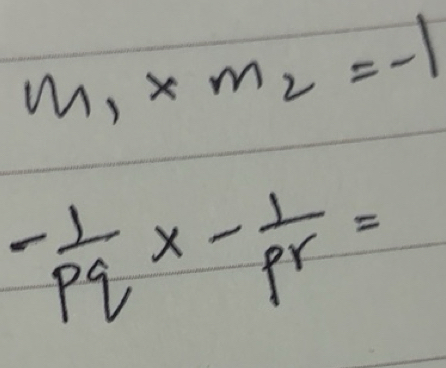 m₁ × m₂ = -1
-1/pq × -1/pr =